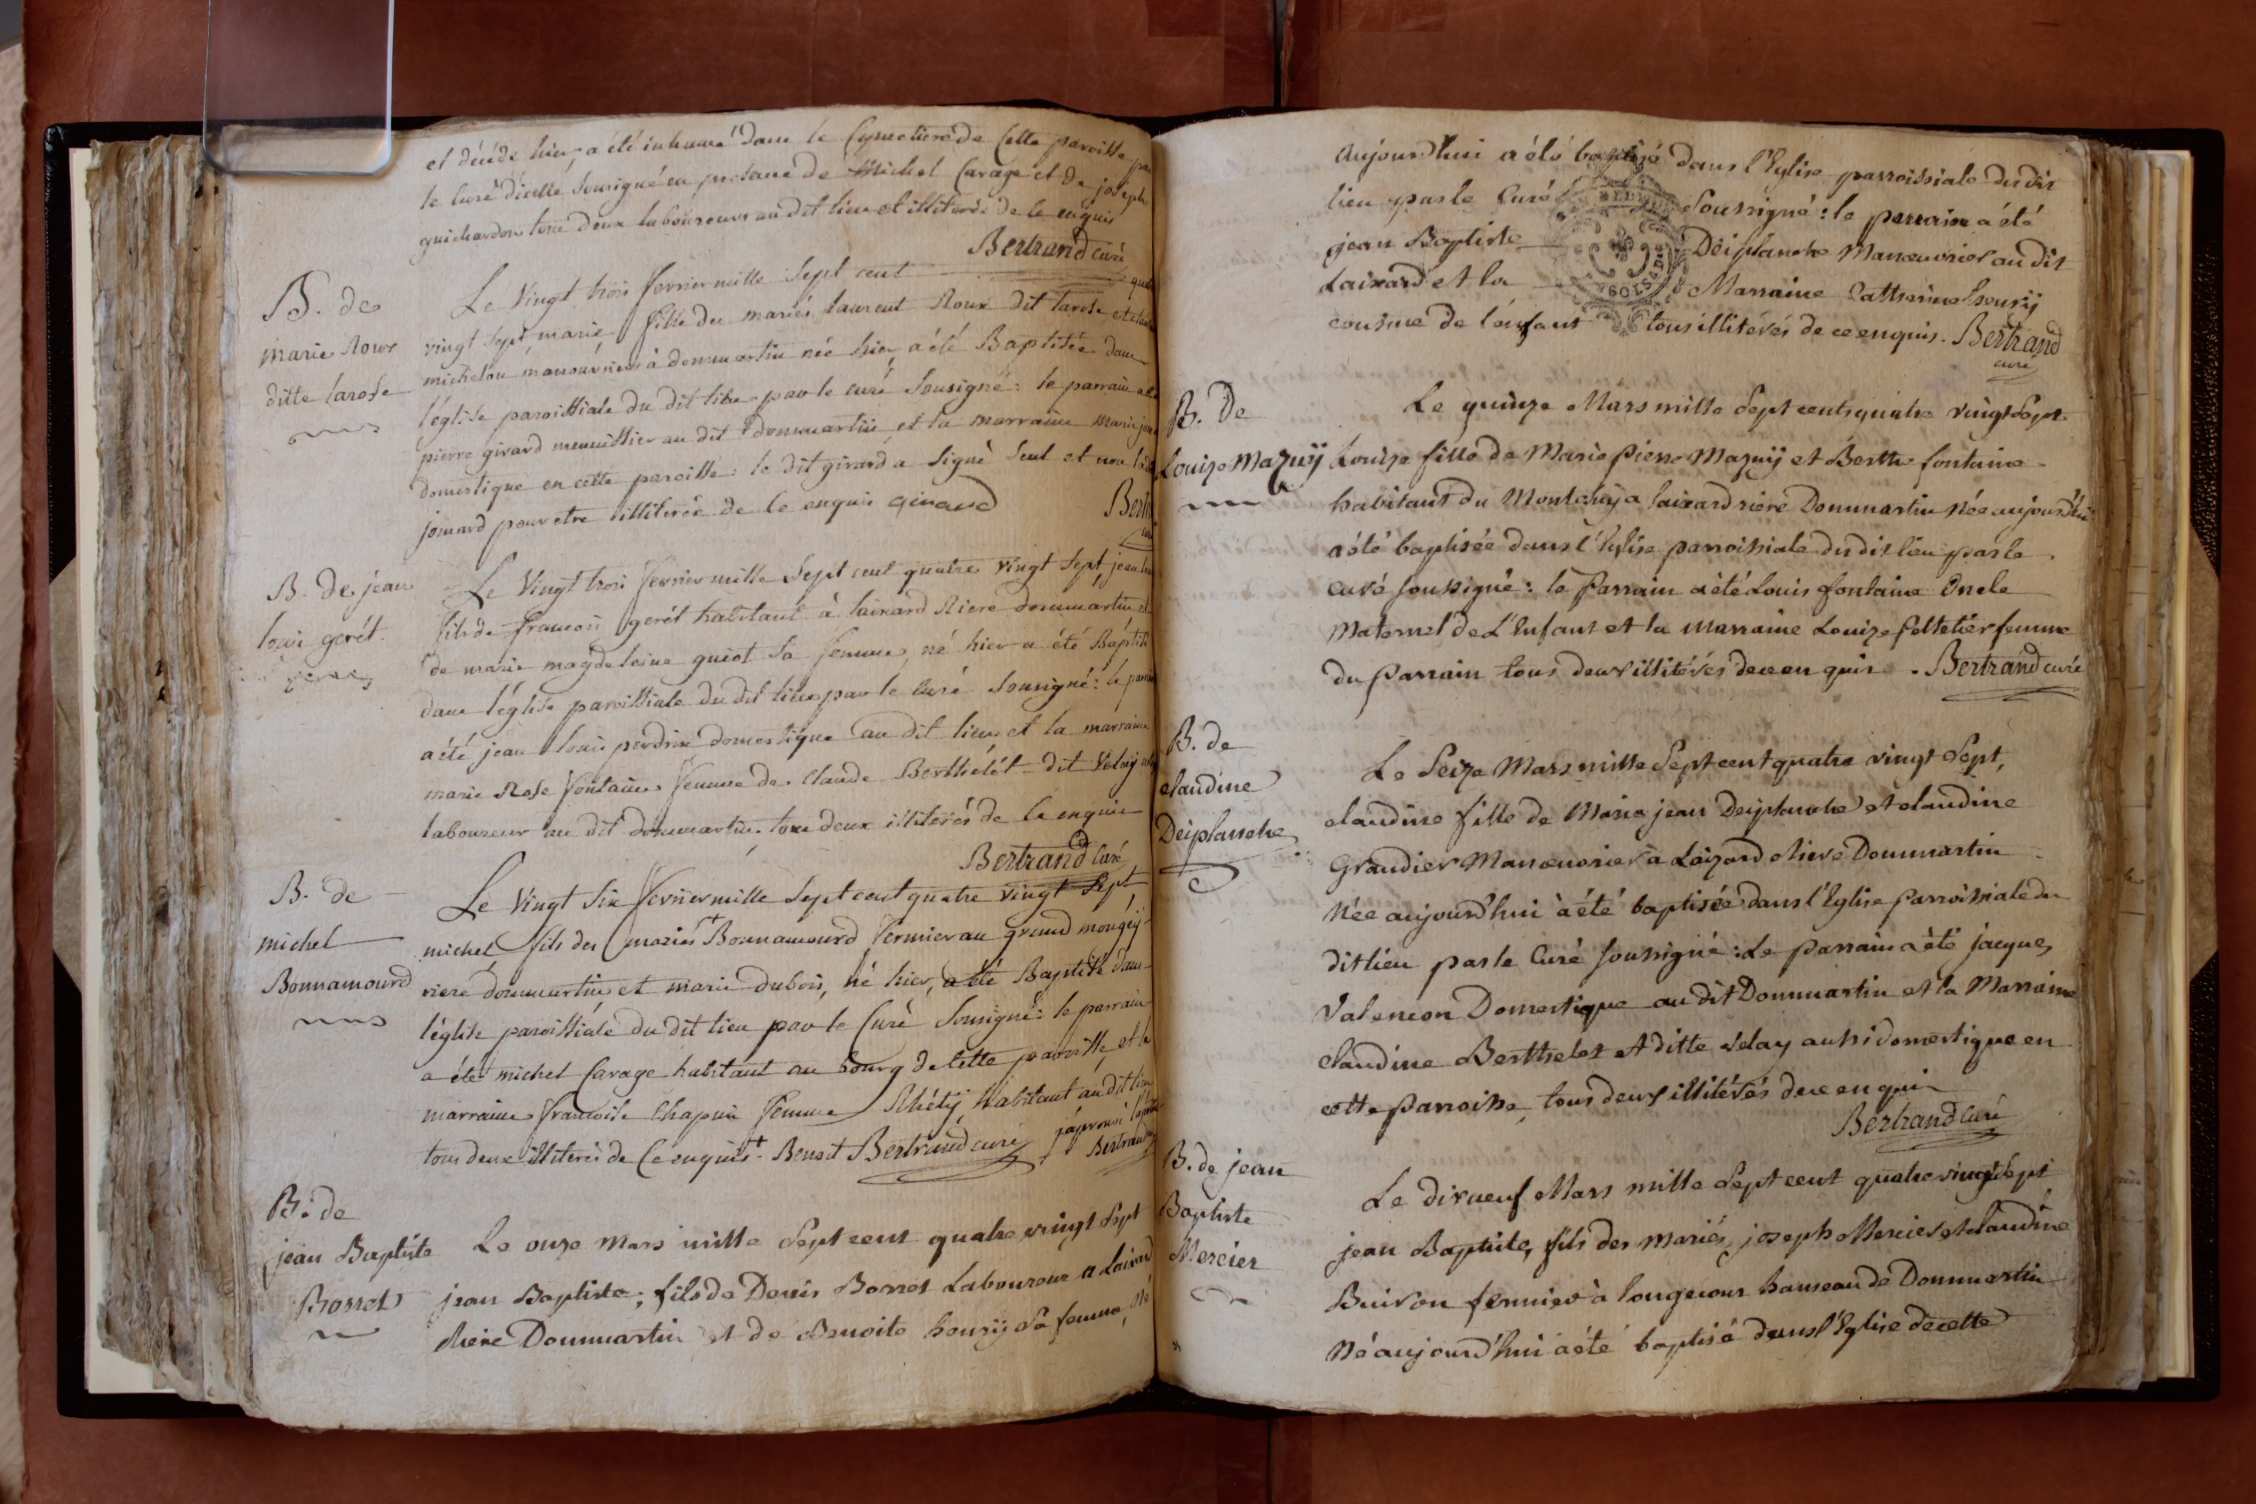 et décédé hier, a été inhumé dans le Cymetiere de Cette paroisse par
le curé d'icelle sousigné en présence de Michel Carage et de joseph
guichardon tous deux laboureurs au dit lieu et illiterés de ce enquis
Bertrand curé
B. de
marie Roux
ditte larose
Le Vingt trois fevrier mille sept cent
vingt sept marie fille des mariés laurent Roux dit larose et
michelou manouvriers à dommartin née hier, a été Baptisée dans
l'église paroissiale du dit lieu par le curé sousigné : le parrain a été
pierre girard menuissier au dit dommartin, et la marraine marie
domestique en cette paroisse : le dit girard a signé seul et non
joinard pour etre illiterée de ce enquis girard
B. de jean
loui gerét
Le Vingt trois fevrier mille sept cent quatre vingt sept, jean
fils de francois gerét habitant à laixard Riere dommartin et
de marie magdeleine guiot sa femme, né hier a été Baptisé
dans l'église paroissiale du dit lieu par le curé sousigné : le parrain
a été jean loui perdrix domestique au dit lieu et la marraine
marie Rose fontaine femme de claude Berthélét dit Velay
laboureur au dit dommartin, tous deux illiterés de ce enquis
Bertrand Curé
B. de
michel
Bonnamourd
Le Vingt six fevrier mille sept cent quatre vingt sept
michel fils des mariés + Bonnamourd fermier au grand mongéÿ
riere dommartin et marie dubois, né hier, a été Baptisé dans
l'église paroissiale du dit lieu par le Curé sousigné : le parrain
a été michel Carage habitant au bourg de cette paroisse, et la
marraine francoise Chapuis femme Rhétÿ habitant au dit lieu
tous deux illiterés de ce enquis + Benoit Bertrand curé
j'aprouve
Bertrand
B. de
jean Baptiste
Borret
Le onze mars mille sept cent quatre vingt sept
jean Baptiste, fils de Denis Borret Laboureur a Laixard
Riere Dommartin et de Benoite houry sa femme, né
aujourd'hui a été baptisé dans l'Eglise parroissiale du dit
lieu par le Curé Soussigné : le parrain a été
jean Baptiste Deiplanche Manouvrier au dit
Laixard et la Marraine Catherine houriÿ
cousine de l'enfant tous illitérés de ce enquis. Bertrand
curé
B. De
Louize Mazuÿ
Le quinze Mars mille Sept cent quatre vingt Sept.
Louize fille de Marie Pierre Mazuÿ et Berthe fontaine
habitant du Montchay a laixard riere Dommartin Née aujourd'hui
a été baptisée dans l'Eglise parroissiale du dit lieu par le
curé soussigné : le Parrain a été Louis fontaine Oncle
Maternel de L'Enfant et la marraine Louize pelletier femme
du Parrain tous deux illitérés de ce enquis. Bertrand curé
B. de
claudine
Deiplanche
Le Seize Mars mille Sept cent quatre vingt Sept,
claudine fille de Marie jean Deiplanche et claudine
Grandier Manouvrier à Laizard Riere Dommartin
Née aujourd'hui à été baptisée dans l'Eglise Parroissiale du
dit lieu par le Curé soussigné : Le Parrain a été jacques
Valencon Domestique au dit Dommartin et la Marraine
claudine Berthelet ditte velay aussi domestique en
cette Parroisse, tous deux illitérés de ce enquis
Bertrand Curé
B. de jean
Baptiste
Mercier
Le dixneuf Mars mille Sept cent quatre vingt Sept
jean Baptiste, fils des mariés joseph Mercier et claudine
Buiron fermier à longecour hameau de Dommartin
Né aujourd'hui a été baptisé dans l'Eglise de cette